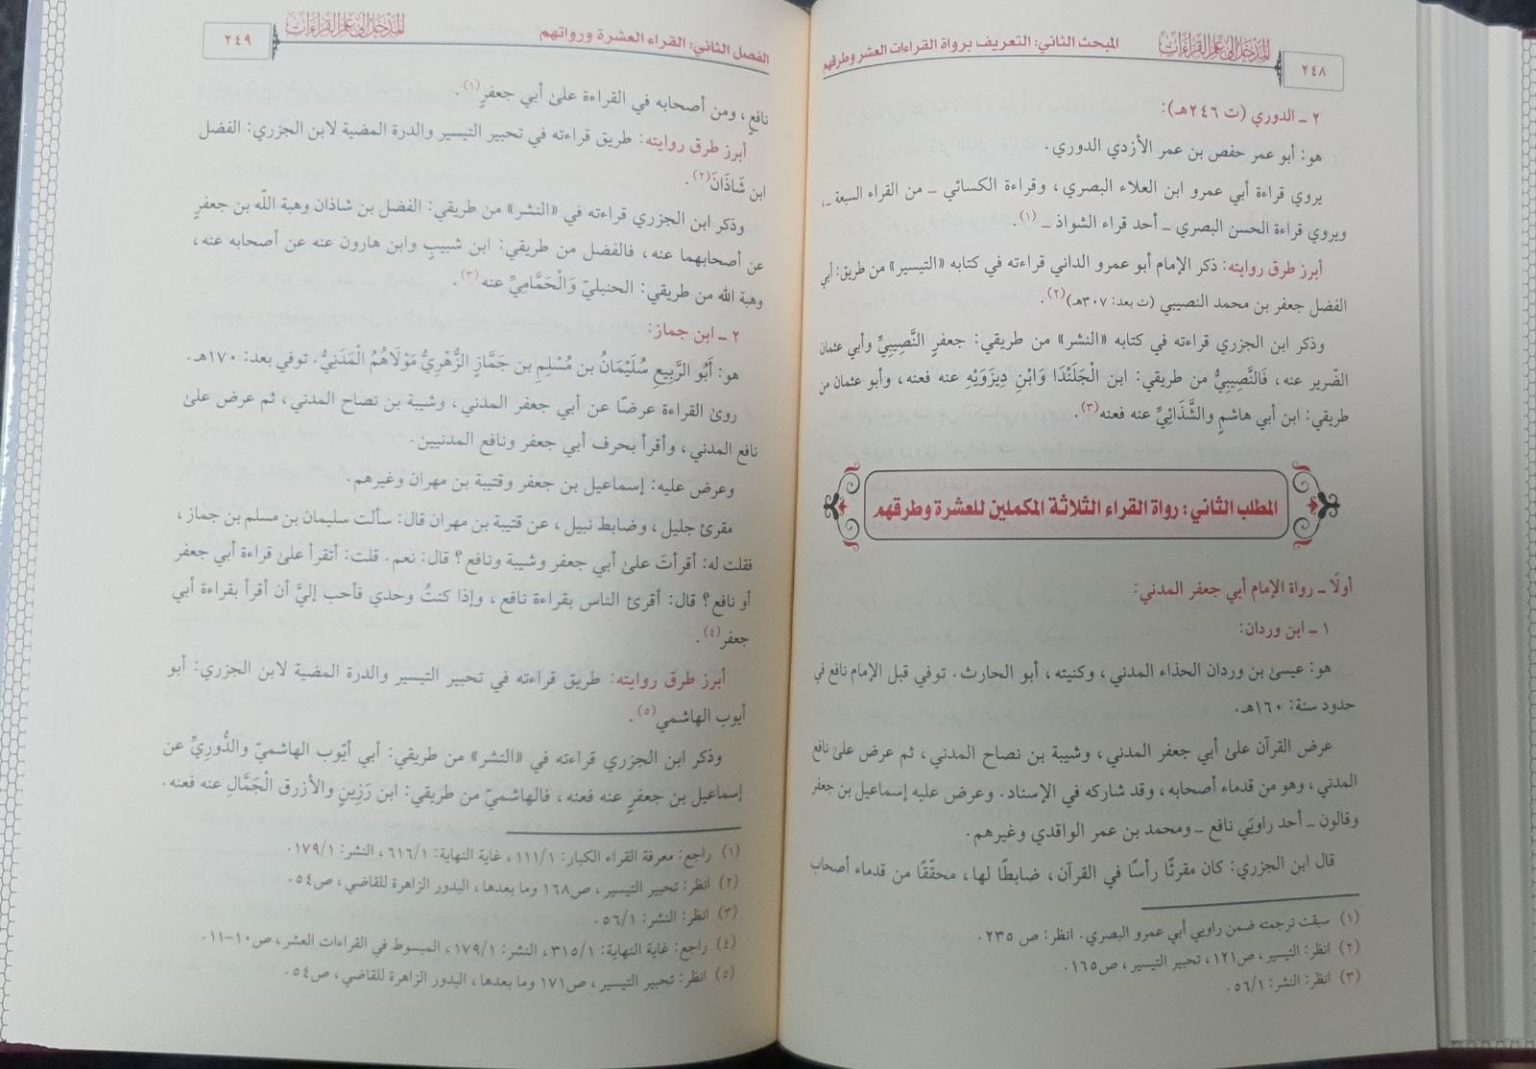 ٢٤٨
المدخل إلى علم القراءات
المبحث الثاني: التعريف برواة القراءات العشر وطرقهم
٢ ـ الدوري (ت ٢٤٦هـ):
هو: أبو عمر حفص بن عمر الأزدي الدوري.
يروي قراءة أبي عمرو ابن العلاء البصري، وقراءة الكسائي ـ من القراء السبعة ـ،
ويروي قراءة الحسن البصري ـ أحد قراء الشواذ ـ(١).
أبرز طرق روايته: ذكر الإمام أبو عمرو الداني قراءته في كتابه «التيسير» من طريق: أبي
الفضل جعفر بن محمد النصيبي (ت بعد: ٣٠٧هـ)(٢).
وذكر ابن الجزري قراءته في كتابه «النشر» من طريقي: جعفرٍ النَّصِيبِيِّ وأبي عثمان
الضّرير عنه، فَالنَّصِيبِيُّ من طريقي: ابن الْجَلَنْدَا وَابْنِ دِيزَوَيْهِ عنه فعنه، وأبو عثمان من
طريقي: ابن أبي هاشمٍ والشَّذَائِيِّ عنه فعنه(٣).
المطلب الثاني: رواة القراء الثلاثة المكملين للعشرة وطرقهم
أولًا ـ رواة الإمام أبي جعفر المدني:
١ ـ ابن وردان:
هو: عيسىٰ بن وردان الحذاء المدني، وكنيته، أبو الحارث. توفي قبل الإمام نافع في
حدود سنة: ١٦٠هـ.
عرض القرآن علىٰ أبي جعفر المدني، وشيبة بن نصاح المدني، ثم عرض علىٰ نافع
المدني، وهو من قدماء أصحابه، وقد شاركه في الإسناد. وعرض عليه إسماعيل بن جعفر
وقالون ـ أحد راويَي نافع ـ ومحمد بن عمر الواقدي وغيرهم.
قال ابن الجزري: كان مقرئًا رأسًا في القرآن، ضابطًا لها، محقّقًا من قدماء أصحاب
(١) سبقت ترجمته ضمن راويي أبي عمرو البصري. انظر: ص ٢٣٥.
(٢) انظر: التيسير، ص١٢١، تحبير التيسير، ص١٦٥.
(٣) انظر: النشر: ٥٦/١.
الفصل الثاني: القراء العشرة ورواتهم
المدخل إلى علم القراءات
٢٤٩
نافعٍ، ومن أصحابه في القراءة علىٰ أبي جعفرٍ(١).
أبرز طرق روايته: طريق قراءته في تحبير التيسير والدرة المضية لابن الجزري: الفضل
ابن شَاذَانَ(٢).
وذكر ابن الجزري قراءته في «النشر» من طريقي: الفضل بن شاذان وهبة اللّه بن جعفرٍ
عن أصحابهما عنه، فالفضل من طريقي: ابن شبيبٍ وابن هارون عنه عن أصحابه عنه،
وهبة الله من طريقي: الحنبليّ وَالْحَمَّامِيِّ عنه(٣).
٢ ـ ابن جماز:
هو: أَبُو الرَّبِيعِ سُلَيْمَانُ بن مُسْلِمِ بن جَمَّازٍ الزُّهْرِيُّ مَوْلَاهُمُ الْمَدَنِيُّ. توفي بعد: ١٧٠هـ.
روىٰ القراءة عرضًا عن أبي جعفر المدني، وشيبة بن نصاح المدني، ثم عرض علىٰ
نافع المدني، وأقرأ بحرف أبي جعفر ونافع المدنيين.
وعرض عليه: إسماعيل بن جعفر وقتيبة بن مهران وغيرهم.
مقرئ جليل، وضابط نبيل، عن قتيبة بن مهران قال: سألت سليمان بن مسلم بن جماز،
فقلت له: أقرأتَ علىٰ أبي جعفر وشيبة ونافع؟ قال: نعم. قلت: أتقرأ علىٰ قراءة أبي جعفر
أو نافع؟ قال: أقرئ الناس بقراءة نافع، وإذا كنتُ وحدي فأحب إليَّ أن أقرأ بقراءة أبي
جعفر(٤).
أبرز طرق روايته: طريق قراءته في تحبير التيسير والدرة المضية لابن الجزري: أبو
أيوب الهاشمي(٥).
وذكر ابن الجزري قراءته في «النشر» من طريقي: أبي أيّوب الهاشميّ والدُّورِيِّ عن
إسماعيل بن جعفرٍ عنه فعنه، فالهاشميّ من طريقي: ابن رَزِينٍ والأزرق الْجَمَّالِ عنه فعنه.
(١) راجع: معرفة القراء الكبار: ١١١/١، غاية النهاية: ٦١٦/١، النشر: ١٧٩/١.
(٢) انظر: تحبير التيسير، ص١٦٨ وما بعدها، البدور الزاهرة للقاضي، ص٥٤.
(٣) انظر: النشر: ٥٦/١.
(٤) راجع: غاية النهاية: ٣١٥/١، النشر: ١٧٩/١، المبسوط في القراءات العشر، ص١٠-١١.
(٥) انظر: تحبير التيسير، ص١٧١ وما بعدها، البدور الزاهرة للقاضي، ص٥٤.